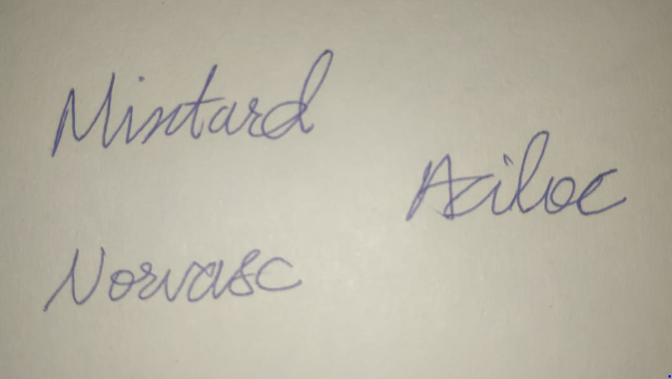 Mixtard
Aciloc
Norvasc